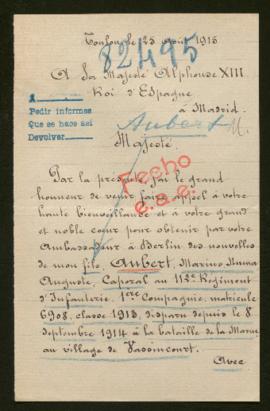 Toulon, le 25 Août 1915
82495
A Sa Majesté Alphonse XIII
Roi d'Espagne
à Madrid.
A
Pedir informes
Que se hace así
Devolver
Aubert M.
Majesté,
Fecho
Par la présente, j'ai le grand
honneur de venir faire appel à votre
haute bienveillance et à votre grand
et noble cœur pour obtenir par votre
Ambassadeur à Berlin des nouvelles
de mon fils, Aubert, Marius
Auguste, Caporal au 112e Régiment
d'Infanterie, 1ère Compagnie, matricule
6908, classe 1913, disparu depuis le 8
septembre 1914 à la bataille de la Marne
au village de Vassincourt.
Avec